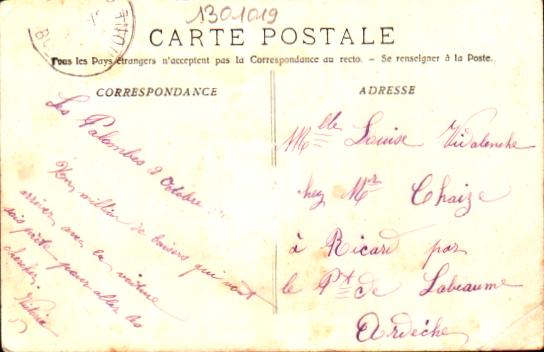 1301019
CARTE POSTALE
Tous les Pays étrangers n'acceptent pas la Correspondance au recto. — Se renseigner à la Poste.
CORRESPONDANCE
Les Palombes 8 Octobre
million de baisers qui vont
arriver avec la
sois prête pour aller les
chercher.
ADRESSE
Mlle Louise Vidalenche
chez Mr Chaize
à Ricard par
le Pt de Labeaume
Ardèche